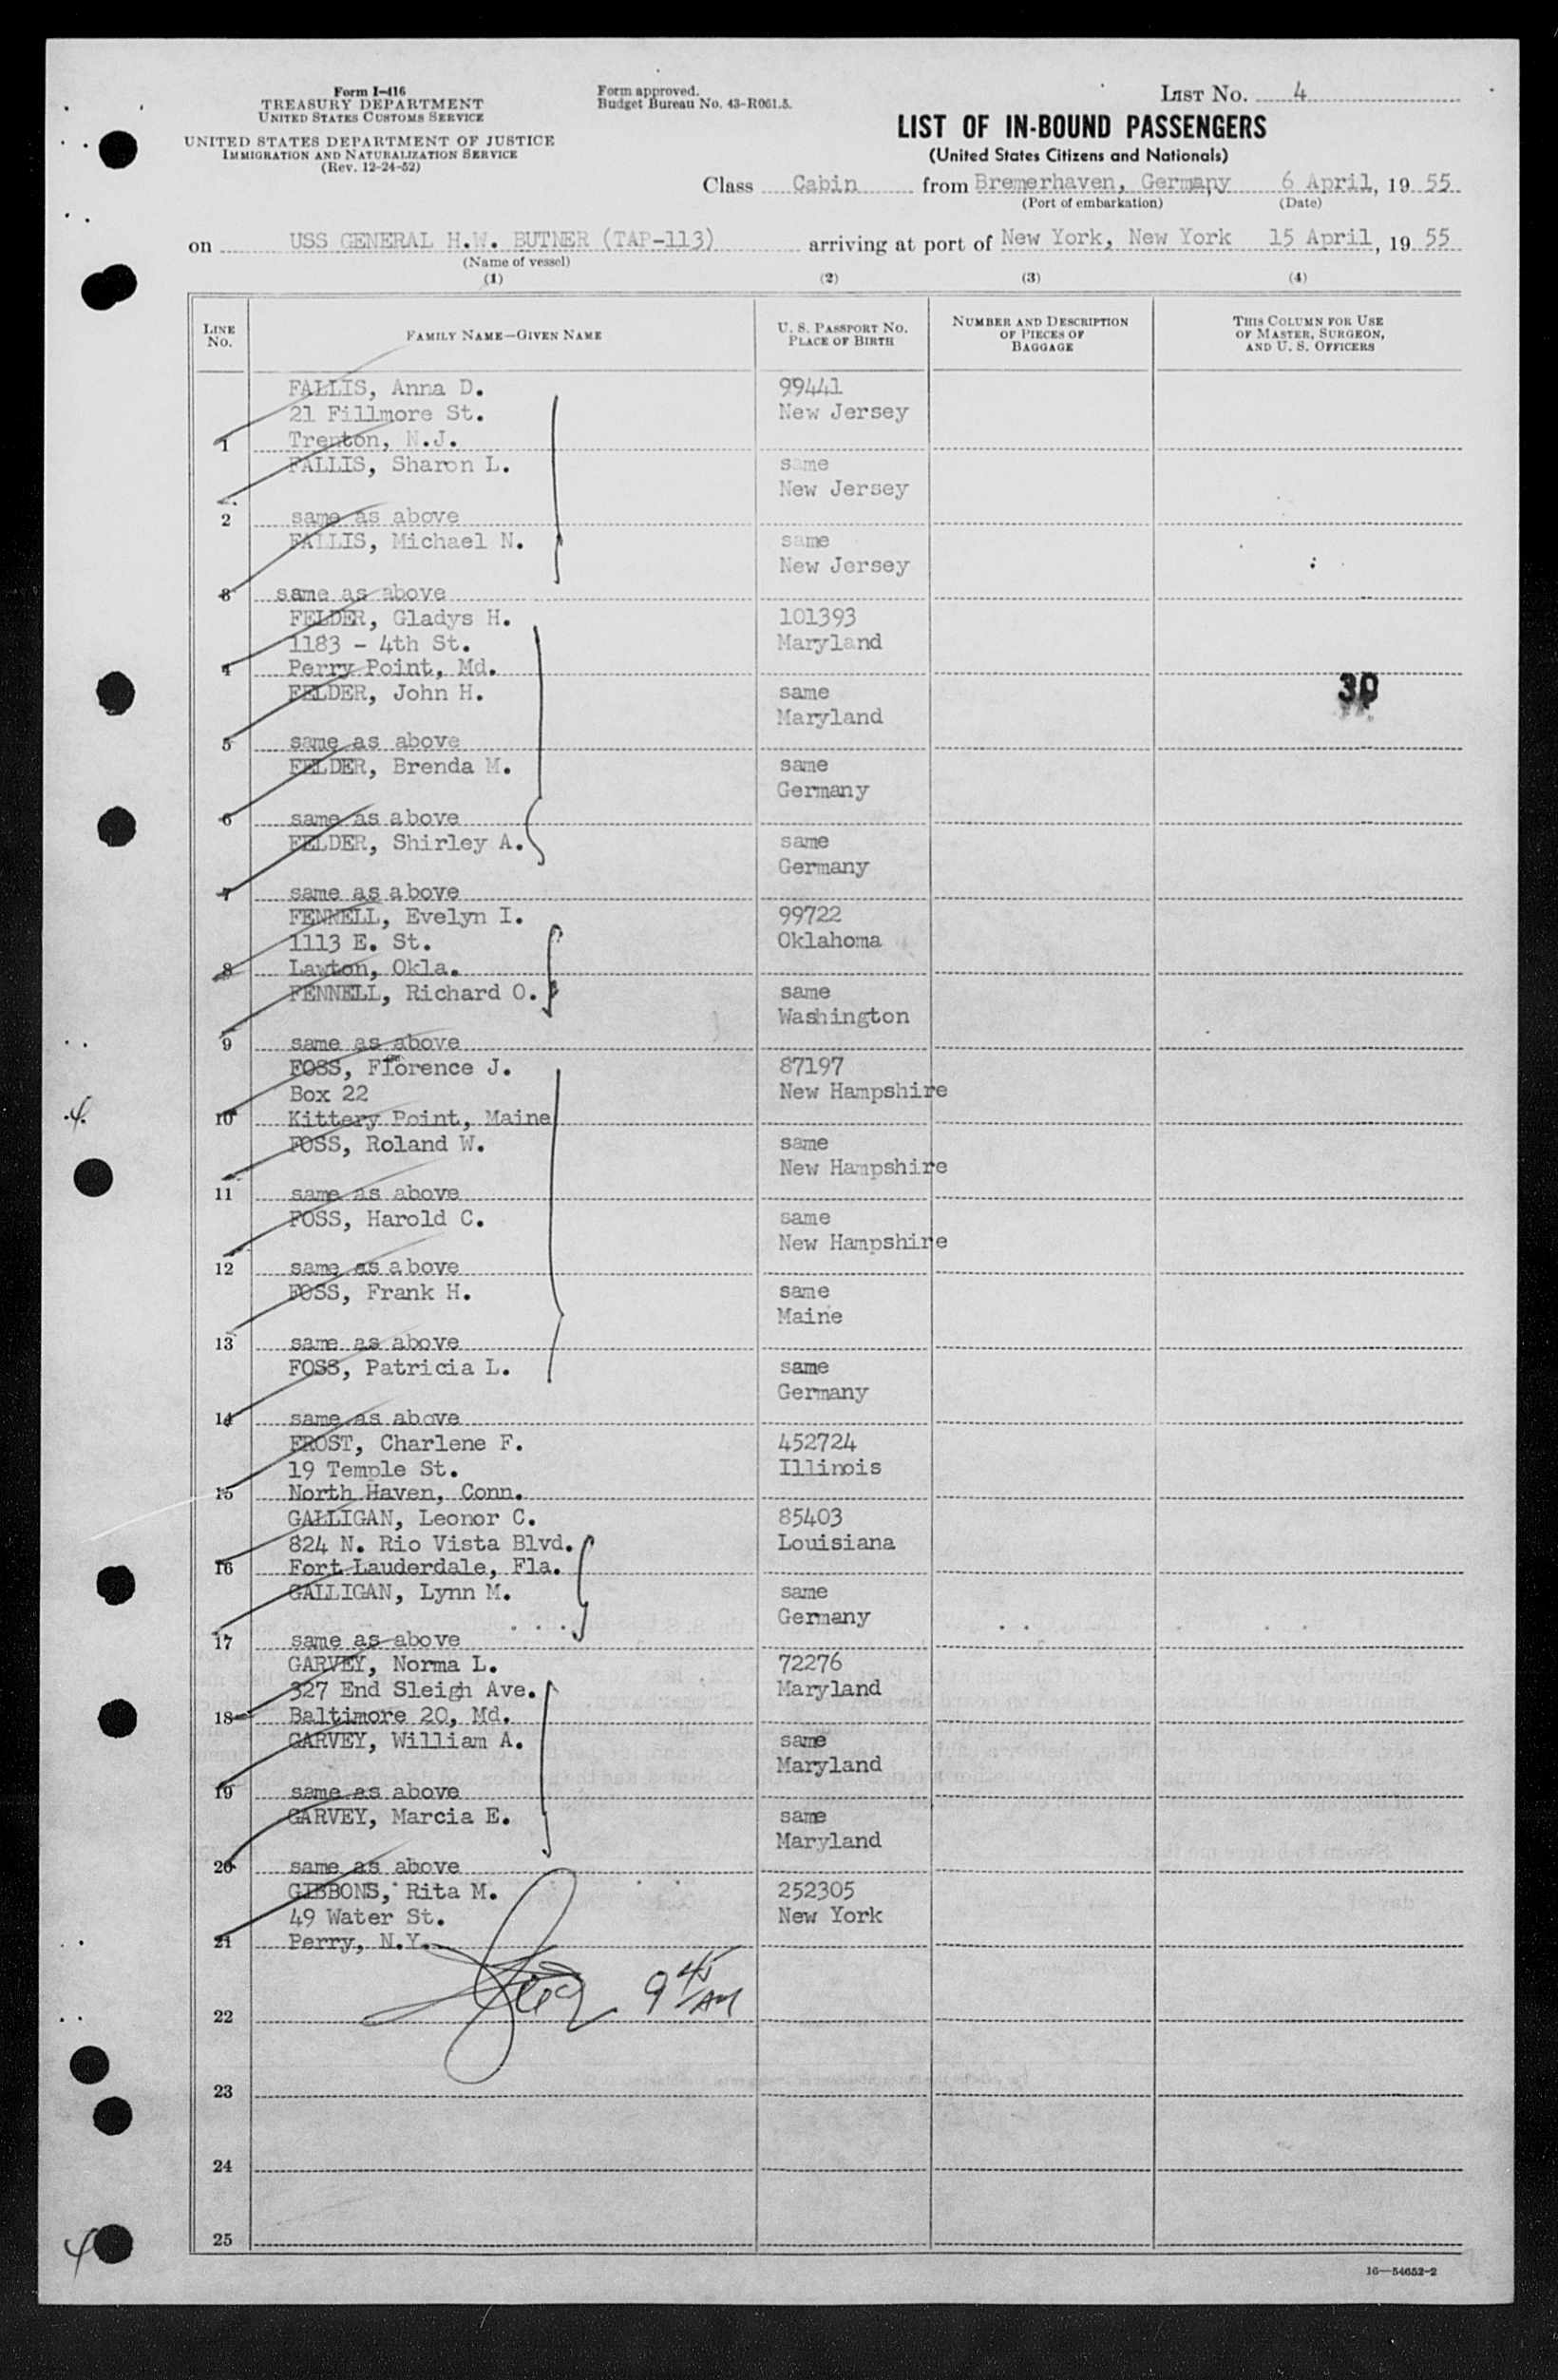 Form I-416
TREASURY DEPARTMENT
UNITED STATES CUSTOMS SERVICE
UNITED STATES DEPARTMENT OF JUSTICE
IMMIGRATION AND NATURALIZATION SERVICE
(Rev. 12-24-52)
Form approved.
Budget Bureau No. 43-R061.5.
LIST No. 4
LIST OF IN-BOUND PASSENGERS
(United States Citizens and Nationals)
Class Cabin from Bremerhaven, Germany 6 April, 19 55
(Port of embarkation) (Date)
on USS GENERAL H.W. BUTNER (TAP-113) arriving at port of New York, New York 15 April, 19 55
(Name of vessel)
(1) (2) (3) (4)
LINE No. FAMILY NAME—GIVEN NAME U. S. PASSPORT NO. PLACE OF BIRTH NUMBER AND DESCRIPTION OF PIECES OF BAGGAGE THIS COLUMN FOR USE OF MASTER, SURGEON, AND U. S. OFFICERS
FALLIS, Anna D. 99441
21 Fillmore St. New Jersey
1 Trenton, N.J.
FALLIS, Sharon L. same
New Jersey
2 same as above
FALLIS, Michael N. same
New Jersey
3 same as above
FELDER, Gladys H. 101393
1183 - 4th St. Maryland
4 Perry Point, Md.
FELDER, John H. same
30
Maryland
5 same as above
FELDER, Brenda M. same
Germany
6 same as above
FELDER, Shirley A. same
Germany
7 same as above
FENNELL, Evelyn I. 99722
1113 E. St. Oklahoma
8 Lawton, Okla.
FENNELL, Richard O. same
Washington
9 same as above
FOSS, Florence J. 87197
Box 22 New Hampshire
4.
10 Kittery Point, Maine
FOSS, Roland W. same
New Hampshire
11 same as above
FOSS, Harold C. same
New Hampshire
12 same as above
FOSS, Frank H. same
Maine
13 same as above
FOSS, Patricia L. same
Germany
14 same as above
FROST, Charlene F. 452724
19 Temple St. Illinois
15 North Haven, Conn.
GALLIGAN, Leonor C. 85403
824 N. Rio Vista Blvd. Louisiana
16 Fort Lauderdale, Fla.
GALLIGAN, Lynn M. same
Germany
17 same as above
GARVEY, Norma L. 72276
327 End Sleigh Ave. Maryland
18 Baltimore 20, Md.
GARVEY, William A. same
Maryland
19 same as above
GARVEY, Marcia E. same
Maryland
20 same as above
GIBBONS, Rita M. 252305
49 Water St. New York
21 Perry, N.Y.
9 45 AM
22
23
24
25
4
16—54652-2